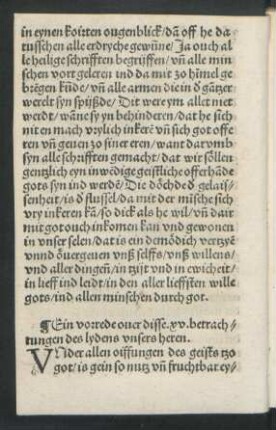 in eynen koitten ougenblick/dā off he da
tusschen alle erdryche gewūne/Ja ouch al
le heilige schrifften begriffen/vn̄ alle min
schen vort geleren ind da mit zo hīmel ge
brēgen kūde/vn̄ alle armen die in d' gātzer
werelt syn spijßde/Dit were ym allet niet
werdt/wāne sy yn behinderen/dat he sich
nit en mach vrylich inkerē vn̄ sich got offe
ren vn̄ geuen zo siner eren/want darumb
syn alle schrifften gemacht/dat wir söllen
gentzlich eyn inwēdige geistliche offerhāde
gots syn ind werdē/Die döchde d' gelais/
senheit/is d' slussel/da mit der mīsche sich
vry inkeren kā/so dick als he wil/vn̄ dair
mit got ouch inkomen kan vnd gewonen
in vnser selen/dat is ein demōdich vertzyē
vnnd öuergeuen vnß selffs/vnß willens/
vnd aller dingen/in tzijt vnd in ewicheit/
in lieff ind leidt/in den aller liefften wille
gots/ind allen minschen durch got.
¶Ein vorrede ouer disse.xv.betrach/
tungen des lydens vnsers heren.
VNder allen oiffungen des geists tzo
got/is gein so nutz vn̄ fruchtbar ey/